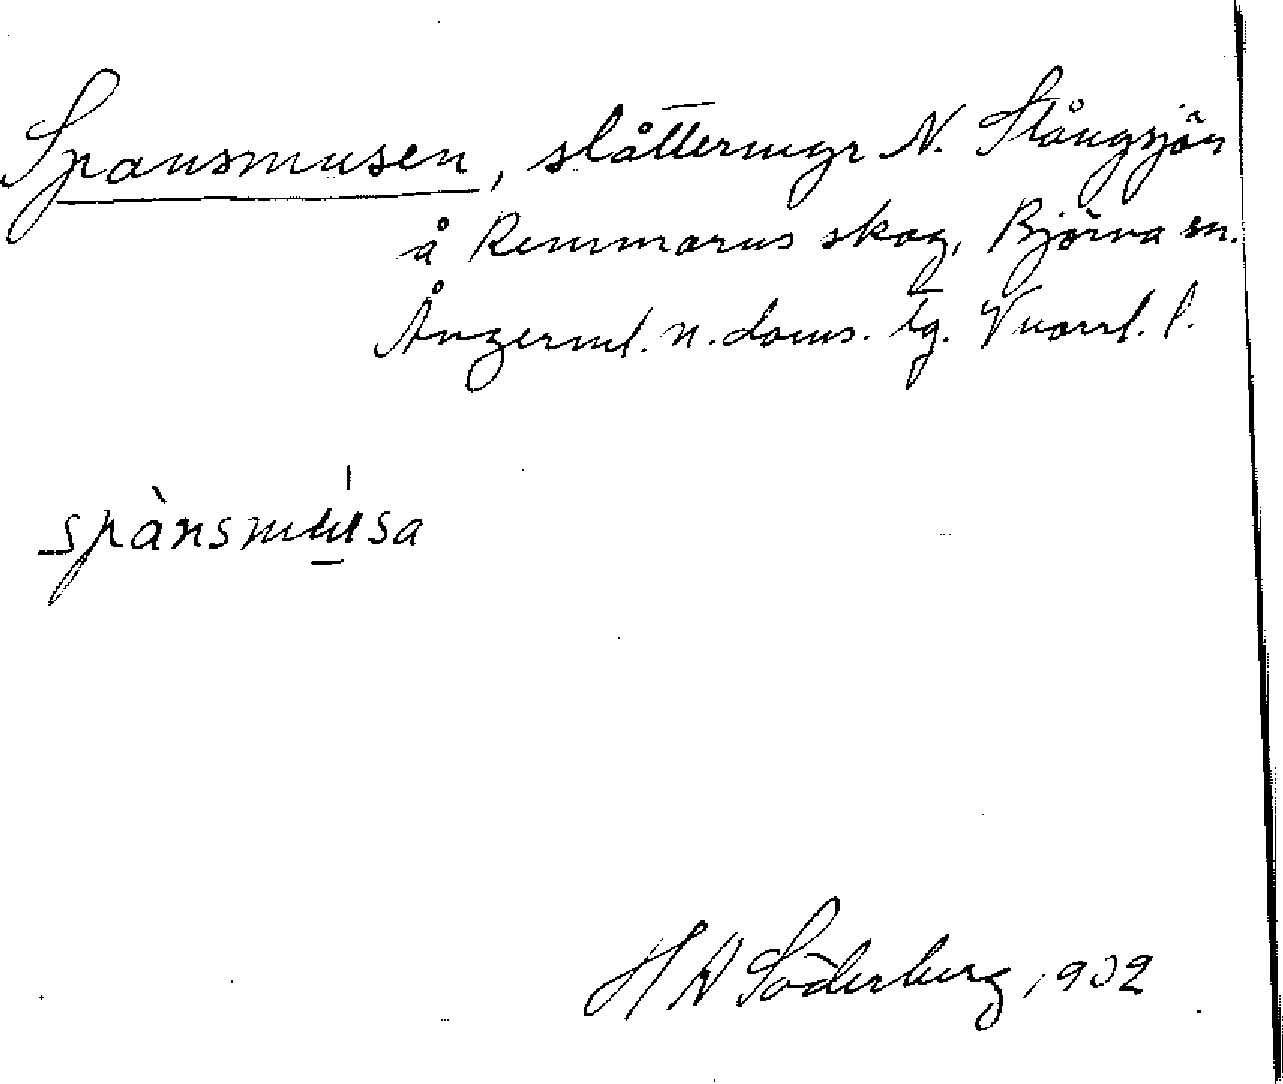 Spansmusen, slåttermyr N. Stångsjön
å Remmarns skog, Björna sn.
Ångerml. n. doms. tg. Vnorrl. l.
spànsmusa
H A Söderberg, 1932